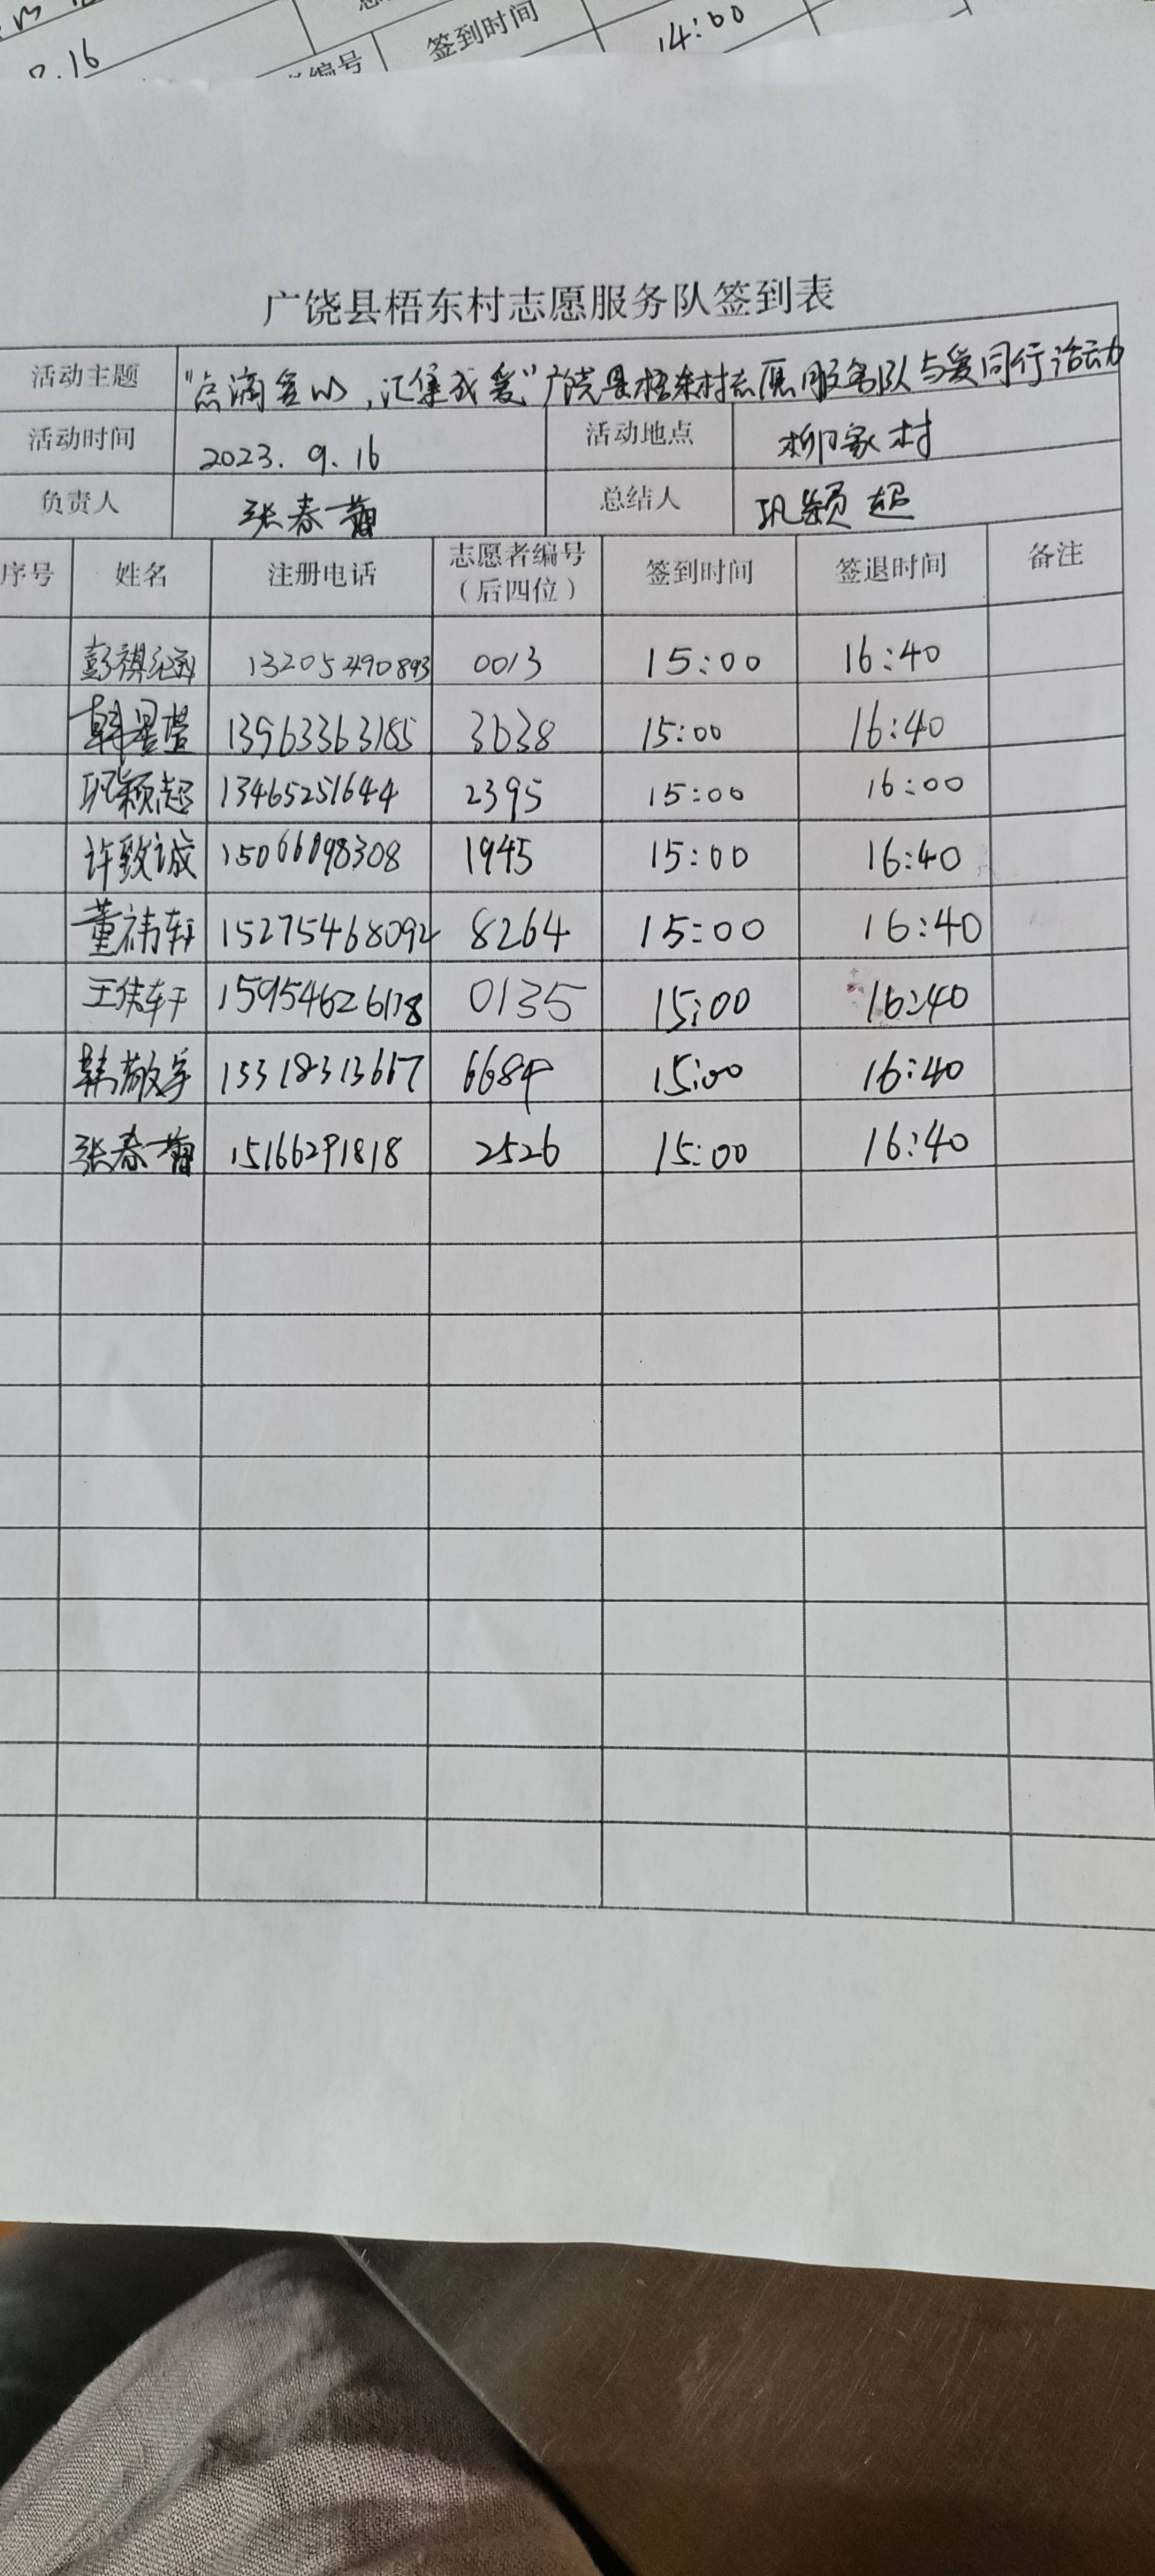 7.16
编号 签到时间 14:00
广饶县梧东村志愿服务队签到表
活动主题 "点滴爱心,汇集成爱"广饶县梧东村志愿服务队与爱同行活动
活动时间 2023.9.16 活动地点 柳家村
负责人 张春 总结人 巩颖超
序号 姓名 注册电话 志愿者编号（后四位） 签到时间 签退时间 备注
彭祺 13205490893 0013 15:00 16:40
韩星萱 13963363185 3638 15:00 16:40
巩颖超 13465251644 2395 15:00 16:00
许致诚 15066098308 1945 15:00 16:40
董祎轩 15275468092 8264 15:00 16:40
王佳轩 0135 15:00 16:40
韩敬 15318313667 6684 15:00 16:40
张春 15166291818 2526 15:00 16:40